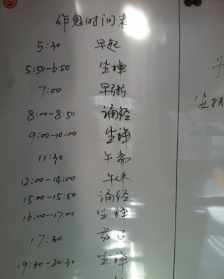 作息时间表
5:30 早起
5:50-6:50 坐禅
7:00 早粥
8:00-8:50 诵经
9:00-10:00 坐禅
11:30 午斋
12:00-14:00 午休
15:00-15:50 诵经
16:00-17:00 坐禅
17:30
19:30-20:30 坐禅